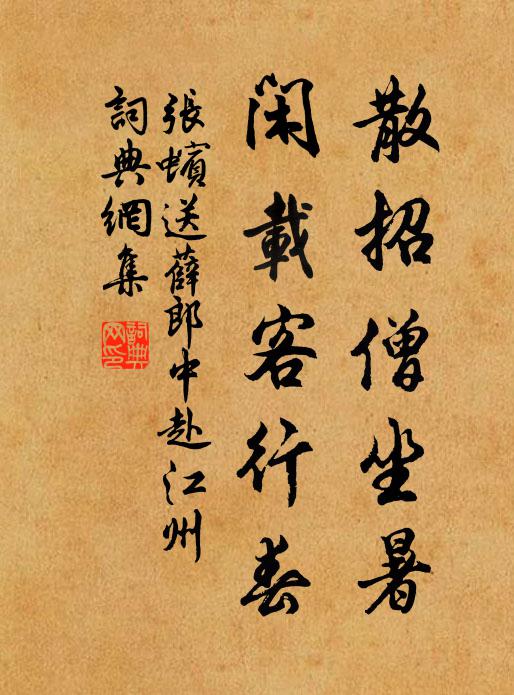 散招僧坐暑
閑載客行春
張蠙送薛郎中赴江州
詞典網集
詞典网印